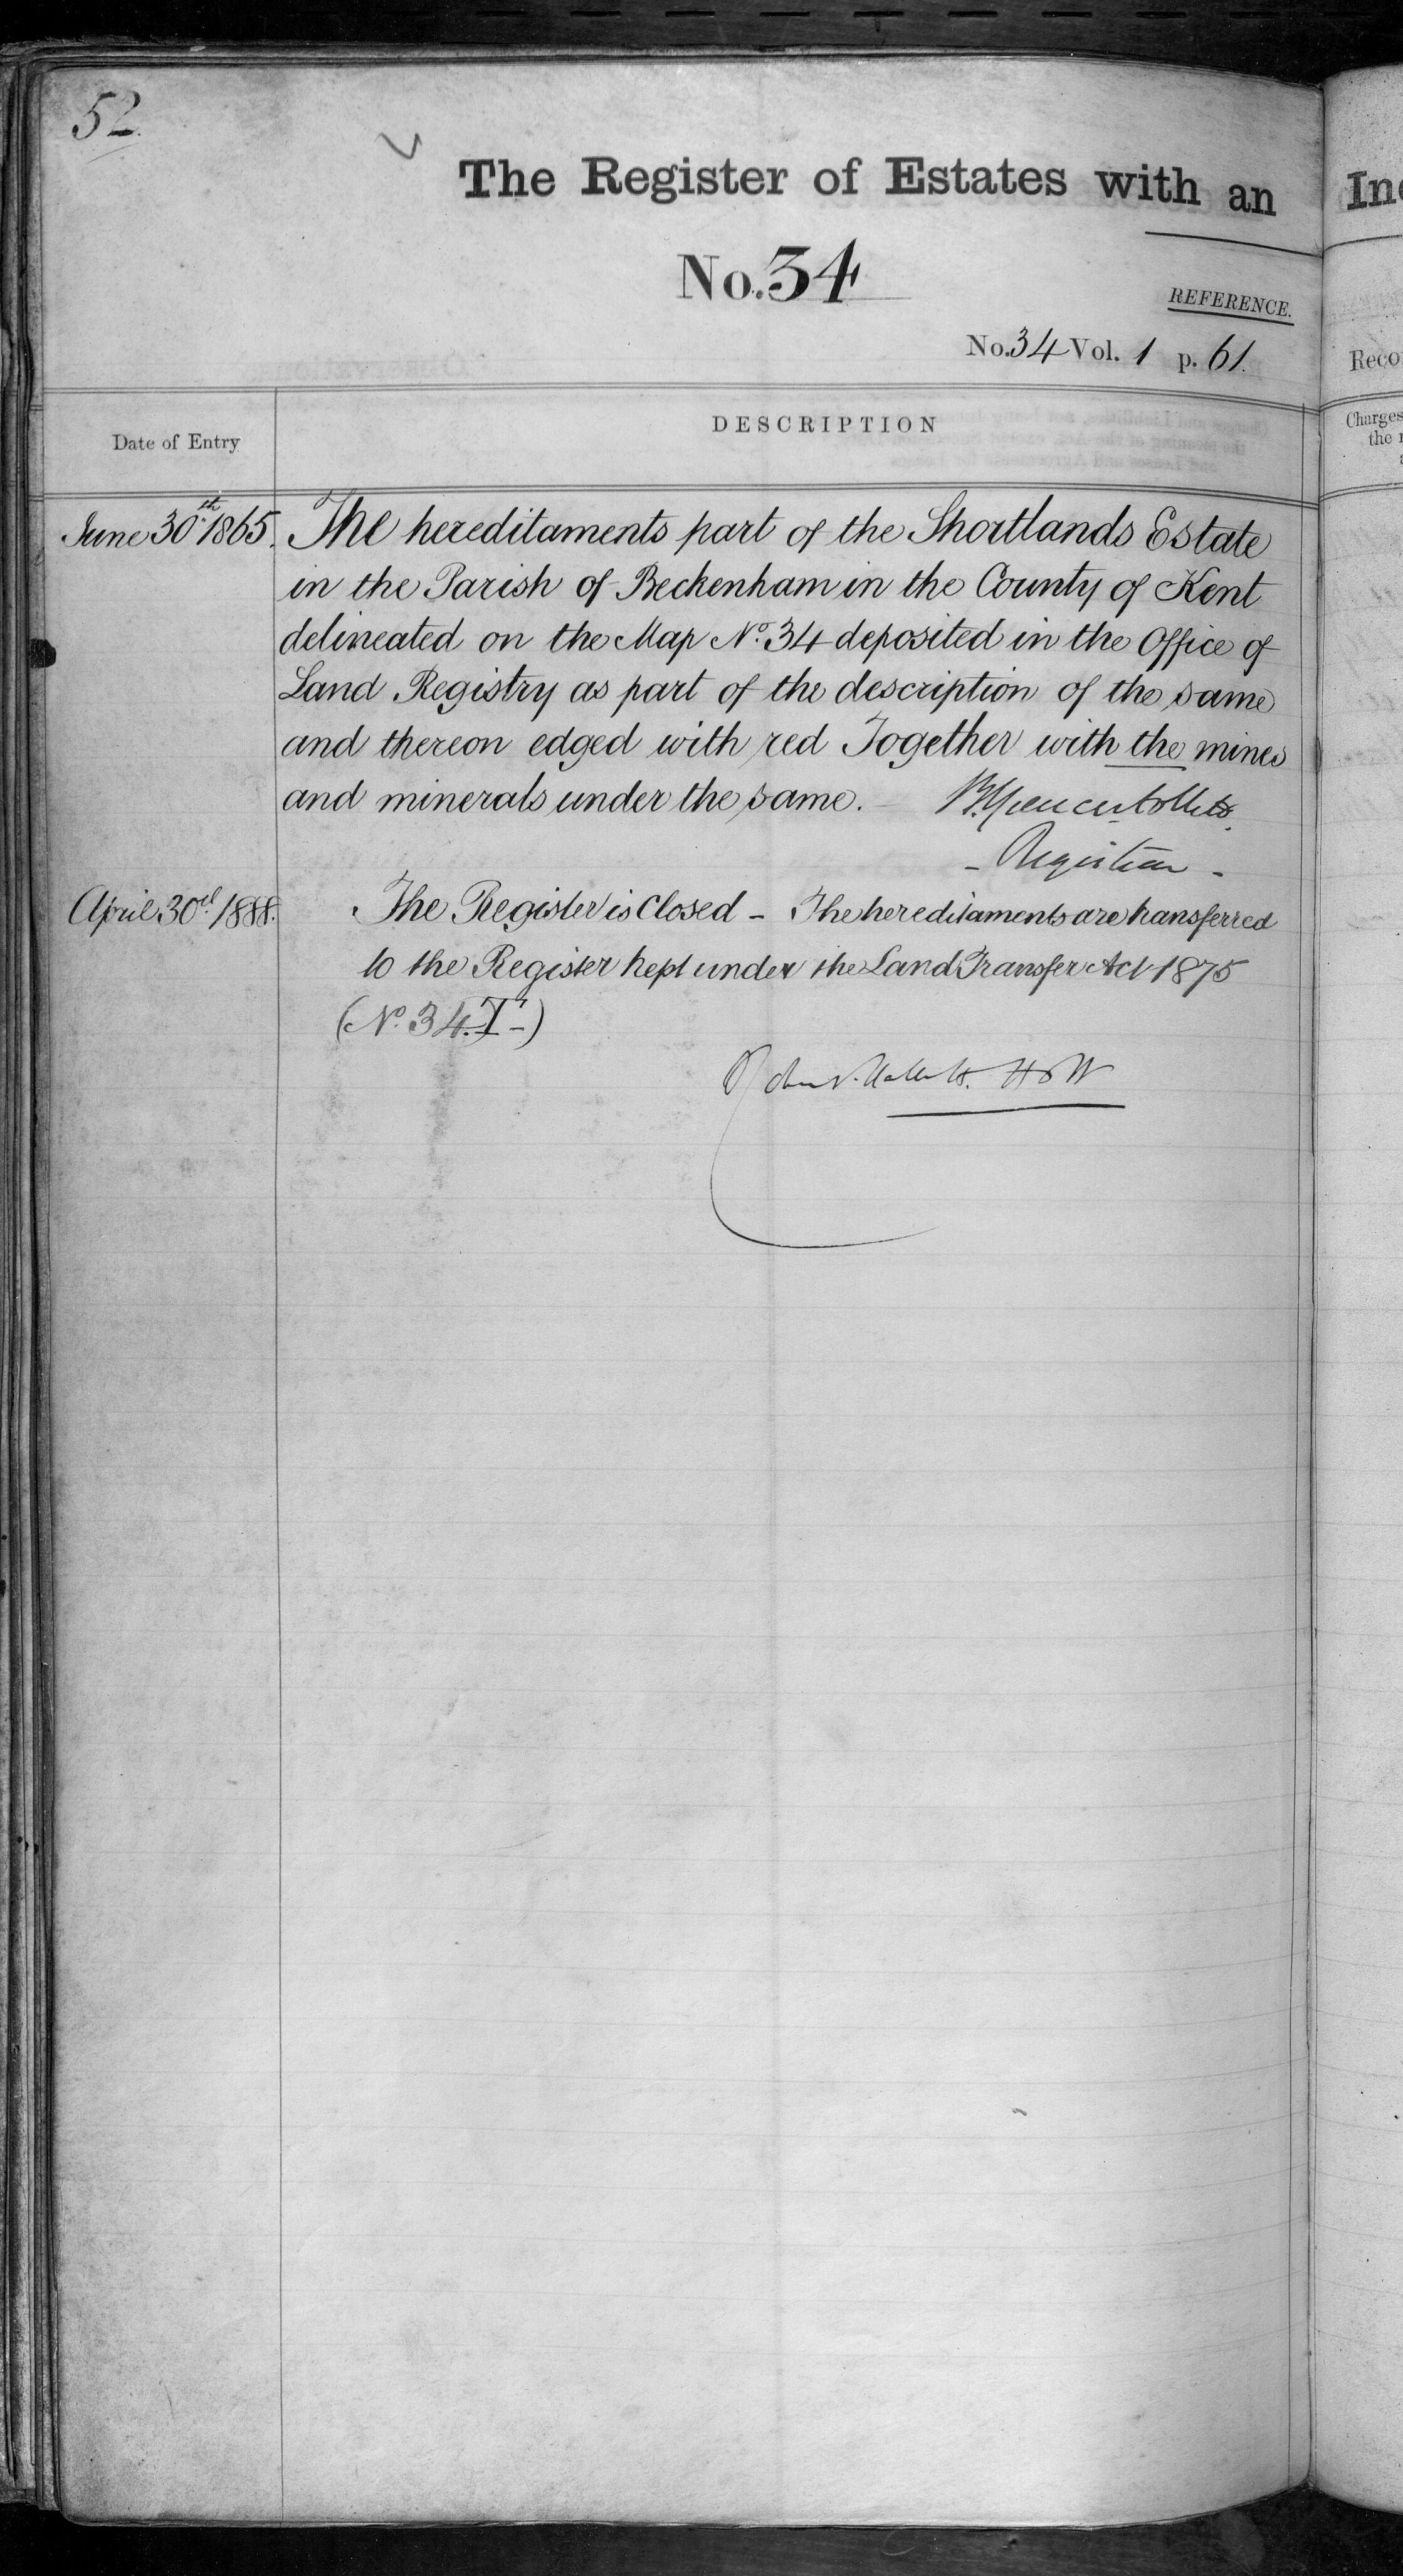 52
The Register of Estates with an
No. 34
REFERENCE.
No. 34 Vol. 1 p. 61.
Date of Entry
DESCRIPTION
June 30th 1865. The hereditaments part of the Shortlands Estate
in the Parish of Beckenham in the County of Kent
delineated on the Map No. 34 deposited in the Office of
Land Registry as part of the description of the same
and thereon edged with red Together with the mines
and minerals under the same.
- Registrar -
April 30th 1888. The Register is Closed - The hereditaments are transferred
to the Register kept under the Land Transfer Act 1875
(No. 34.T-)
Reco
Charges
the